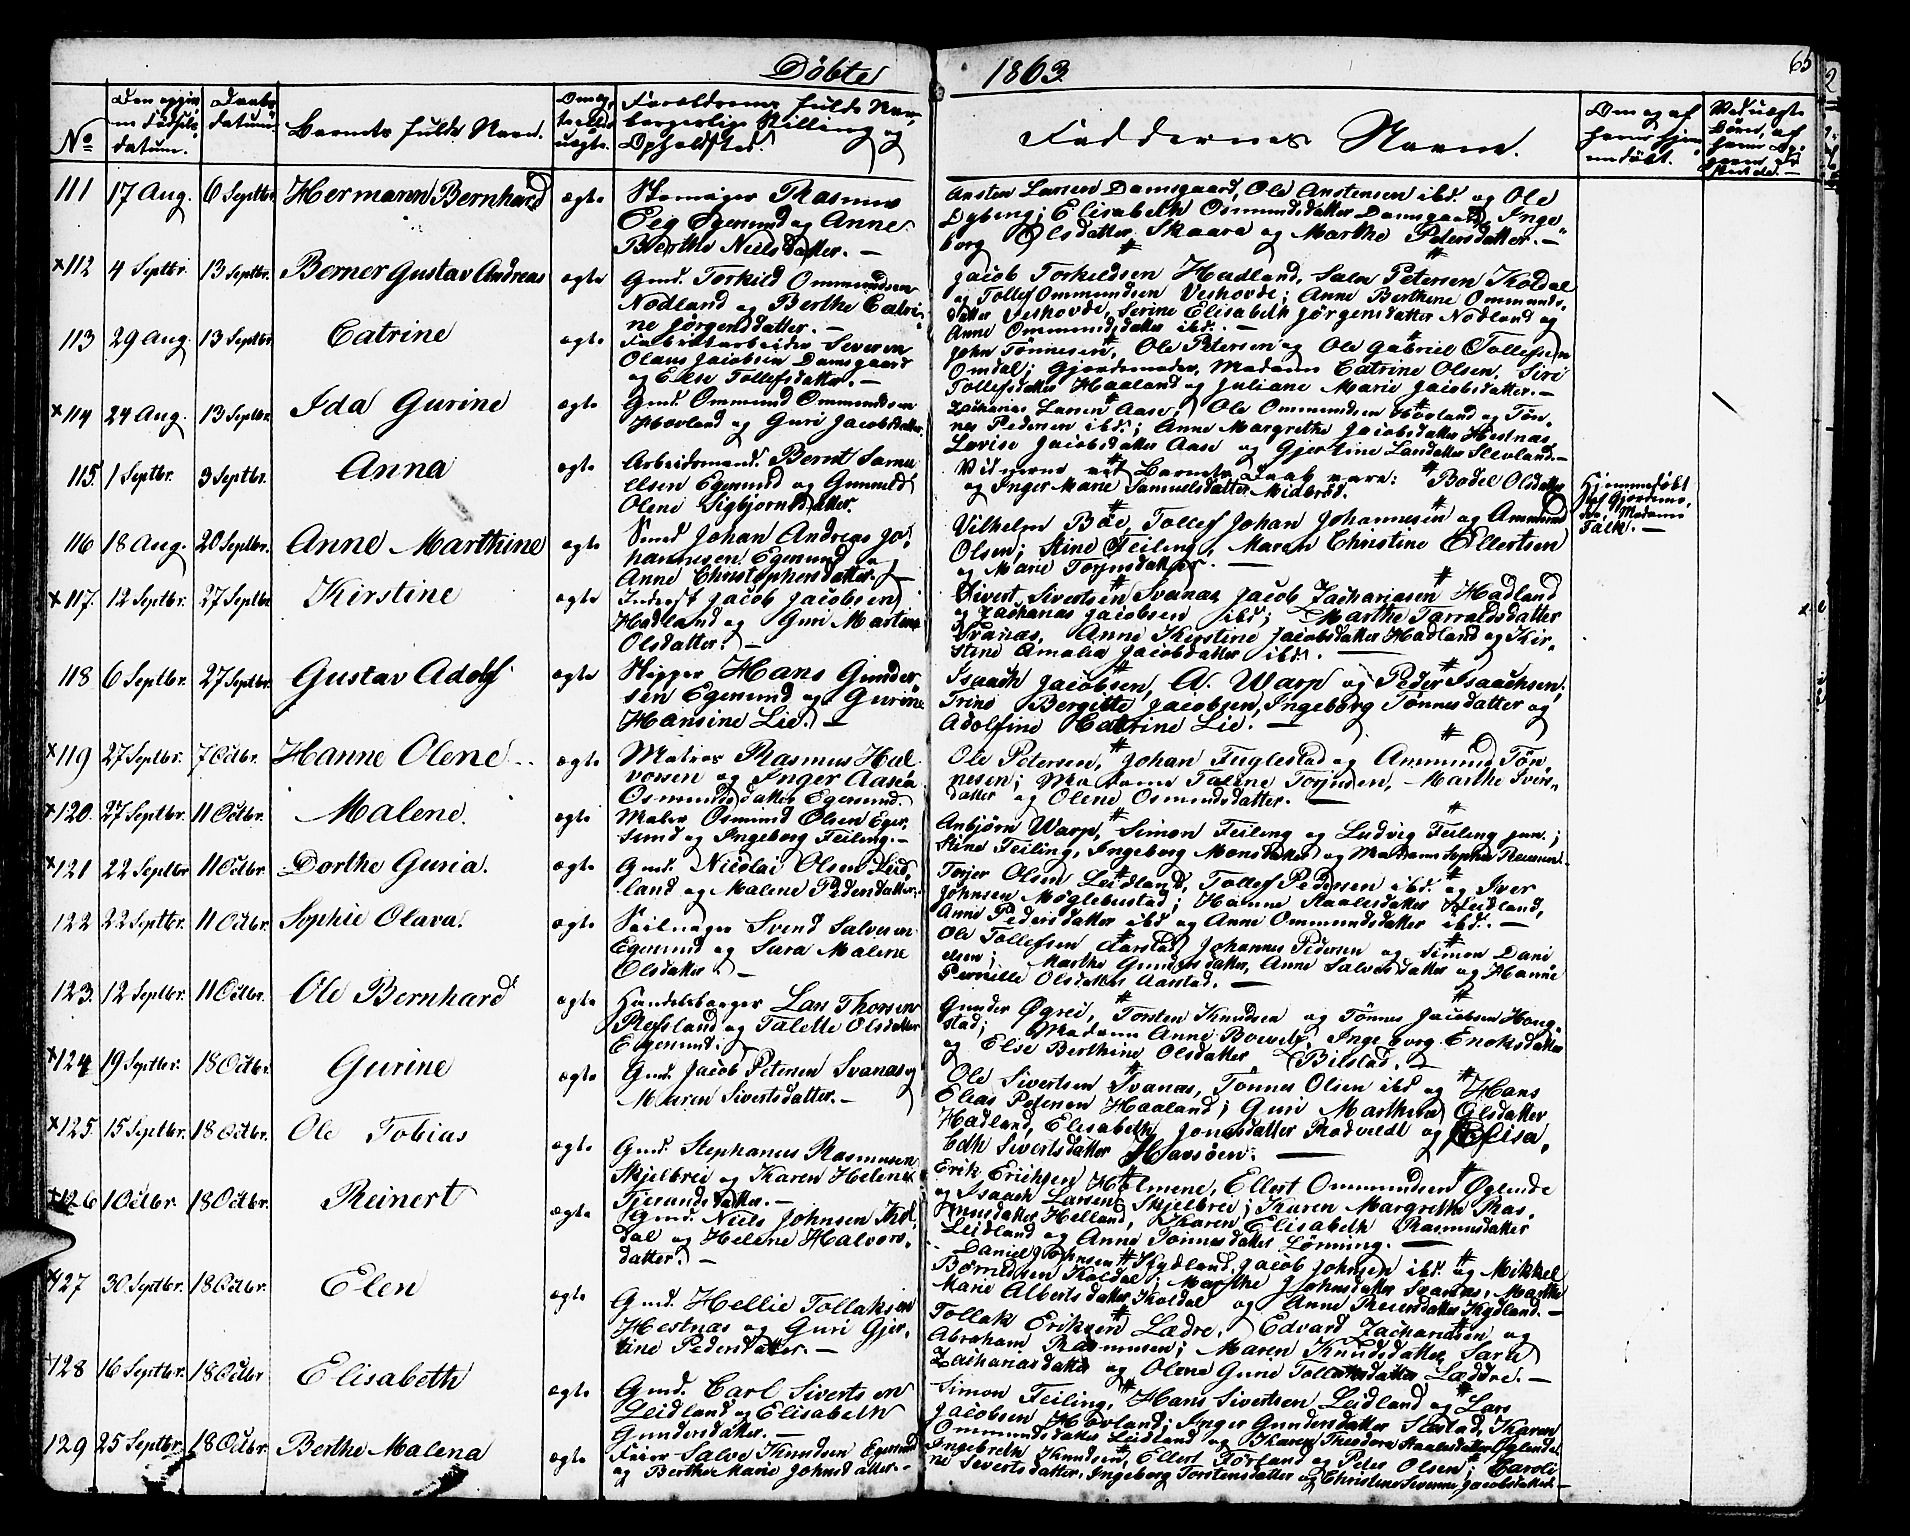 Döbte 1863. 65
No
Den opgivne Födsels datum.
Daabs datum.
Barnets fulde Navn.
Om egte eller uegte.
Forældrenes fulde Navn, borgerlige Stilling og Opholdsted.
Faddernes Navne.
Om og af hvem hjemmedöbt.
111 17 Aug. 6 Septbr. Hermann Bernhard ægte
Rasmus
Eeg Egersund og Anne
Berthe Nielsdatter. —
Ansten Larsen Damsgaard, Ole Anstensen ibd. og Ole
Dyberg; Elisabeth Osmundsdatter Damsgaard, Inge-
borg Olsdatter Skaara og Marthe Petersdatter. —
x112 4 Septbr. 13 Septbr. Berner Gustav Andreas ægte
Gmd. Torkild Ommundsen
Nodland og Berthe Catri-
ne Jörgensdatter. —
Jacob Torkildsen Hadland, Salve Petersen Koldal
og Tollef Ommundsen Veshovde; Anne Berthine Ommunds-
datter Veshovde, Serine Elisabeth Jörgensdatter Nodland og
Anne Ommundsdatter ibd. —
113 29 Aug. 13 Septbr. Catrine ægte
Fabrikarbeider Severin
Olaus Jacobsen Damsgaard
og Else Tollefsdatter. —
John Tönnesen, Ole Petersen og Ole Gabriel Tollefsen
Omdal; Gjordemoder, Madame Catrine Olsen, Siri
Tollefsdatter Haaland og Juliane Marie Jacobsdatter. —
x114 24 Aug. 13 Septbr. Ida Gurine ægte
Gmd. Ommund Ommundsen
Hovland og Guri Jacobsdatter.
Zacharias Larsen Aase, Ole Ommundsen Hovland og Tön-
nes Pedersen ibd.; Anne Margrethe Jacobsdatter Hestnas,
Lovise Jacobsdatter Aase og Gjertine Larsdatter Slevland. —
115. 1 Septbr. 3 Septbr. Anna ægte
Arbeidsmand Bernt Samu-
elsen Egersund og Gunhild
Olene Sigbjörnsdatter.
Vidnerne ved Barnets Daab vare: Bodel Olsdatter
og Inger Marie Samuelsdatter Midbröd.
Hjemmedöbt
af Gjordemo-
der, Madame
Falk. —
116 18 Aug. 20 Septbr. Anne Marthine ægte
Smed Johan Andreas Jo-
hannesen Egersund og
Anne Christophersdatter. —
Vilhelm Böe, Tollef Johan Johannesen og Ammund
Olsen; Stine Feiling, Maren Christine Ellertsen
og Marie Torjusdatter. —
x117. 12 Septbr. 27 Septbr. Kirstine ægte
Inderst Jacob Jacobsen
Hadland og Guri Martine
Olsdatter. —
Sivert Sivertsen Svanas, Jacob Zachariasen Hadland
og Zacharias Jacobsen ibd; Marthe Tarraldsdatter
Svanas, Anne Kirstine Jacobsdatter Hadland og Kir-
stine Amalia Jacobsdatter ibd. —
118 6 Septbr. 27 Septbr. Gustav Adolf ægte
Skipper Hans Gunder-
sen Egersund og Gurine
Hansine Lie. —
Isaach Jacobsen, A. Warp og Peder Isaachsen;
Trine Bergitte Jacobsen, Ingeborg Tönnesdatter og
Adolfine Catrine Lie. —
x119 27 Septbr. 7 Octbr. Hanne Olene ægte
Matros Rasmus Hal-
vorsen og Inger Aasea
Osmundsdatter Egersund.
Ole Petersen, Johan Fuglestad og Ammund Tön-
nesen; Madame Taline Torjusen, Marthe Sven-
datter og Olene Osmundsdatter. —
x120. 27 Septbr. 11 Octbr. Malene. ægte
Maler Osmund Olsen Eger-
sund og Ingeborg Feiling. —
Anbjörn Warp, Simon Feiling og Ludvig Feiling jun.;
Stine Feiling, Ingeborg Monsdatter og Madame Sophie
x121 22 Septbr 11 Octbr. Dorthe Guria. ægte
Gmd. Nicolai Olsen Leid-
land og Malene Pedersdatter.
Torjer Olsen Leidland, Tollef Pedersen ibd. og Iver
Johnsen Möglebustad; Hanne Raalesdatter Leidland,
Anne Pedersdatter ibd og Anne Ommundsdatter ibd. —
122 22 Septbr. 11 Octbr. Sophie Olava. ægte
Seilmager Svend Salvesen
Egersund og Sara Malene
Olsdatter. —
Ole Tollefsen Aarstad, Johannes Pedersen og Simon Dani-
elsen; Marthe Gundersdatter, Anne Salvesdatter og Hanne
Pernille Olsdatter Aarstad. —
123. 12 Septbr. 11 Octbr. Ole Bernhard ægte
Handelsborger Lars Thorsen
Refsland og Talette Olsdatter
Egersund. —
Gunder Øgrei, Torsten Knudsen og Tönnes Jacobsen Houg-
stad; Madame Anne Bowits, Ingeborg Enoksdatter
og Else Berthine Olsdatter Bilstad. —
x124 19 Septbr. 18 Octbr. Gurine ægte
Gmd. Jacob Petersen Svanas og
Maren Sivertsdatter. —
Ole Sivertsen Svanas, Tönnes Olsen ibd og Hans
Elias Petersen Haaland; Guri Marthea Olsdatter
Hadland, Elisabeth Jonasdatter Rodvedt og Elisa-
beth Sivertsdatter Havsöen. —
x125. 15 Septbr. 18 Octbr. Ole Tobias ægte
Gmd. Stephanus Rasmussen
Skjelbrei og Karen Helene
Tjerandsdatter. —
Erik Erichsen Holmene, Ellert Ommundsen Øglende
og Isaach Larsen Skjelbrei; Karen Margrethe Ras-
musdatter Helland, Karen Elisabeth Rasmusdatter
Leidland og Anne Tönnesdatter Lörning. —
x126 1 Octbr. 18 Octbr. Reinert ægte
Gmd. Niels Johnsen Kol-
dal og Helene Halvors-
datter. —
Daniel Johnsen Kydland, Jacob Johnsen ibd. og Mikkel
Börildsen Koldal; Marthe Johnsdatter Svanas, Marthe
Marie Albertsdatter Koldal og Anne Reiersdatter Kydland. —
x127 30 Septbr. 18 Octbr. Elen ægte
Gmd. Hellie Tollaksen
Hestnas og Guri Gjer-
tine Pedersdatter. —
Tollak Eriksen Lædre, Edvard Zachariasen og
Abraham Rasmusen; Maren Knudsdatter, Sara
Zachariasdatter og Olene Gurie Tollaksdatter Læddre. —
128 16 Septbr. 18 Octbr Elisabeth ægte
Gmd. Carl Sivertsen
Leidland og Elisabeth
Gundersdatter. —
Simon Feiling, Hans Sivertsen Leidland og Lars
Jacobsen Hovland; Inger Gundersdatter Slestad, Karen
Ommundsdatter Leidland og Karen Theodora Raalesdatter Øglende.
129 25 Septbr. 18 Octbr. Berthe Malena ægte
Feier Salve Knudsen Egersund
og Berthe Marie Johnsdatter. —
Ingebreth Knudsen, Ellert Rörland og Peter Olsen; Caroli-
ne Sivertsdatter, Ingeborg Torstensdatter og Christine Severine Jacobsdatter. —